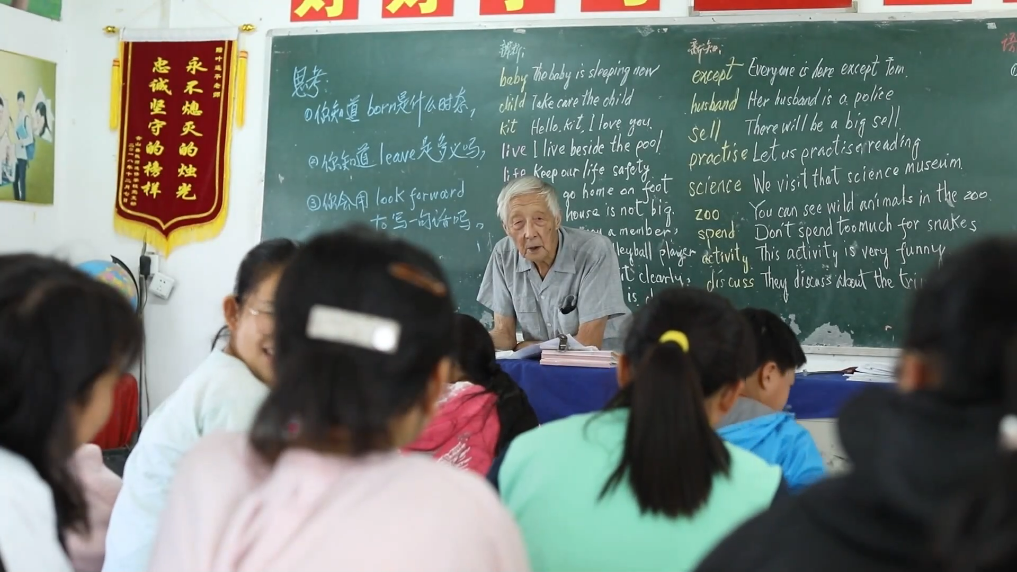 好好学习
永不熄灭的烛光
忠诚坚守的榜样
思考:
①你知道born是什么时态,
②你知道leave是多义吗,
③你会用look forward
to写一句话吗,
baby The baby is sleeping now
child Take care the child
kit Hello, kit, I love you.
live I live beside the pool
life keep our life safety
go home on foot
house is not big.
a member,
volleyball player
it clearly.
新知:
except Everyone is here except Tom.
husband Her husband is a police
sell There will be a big sell
practise Let us practise reading
science We visit that science museum
zoo You can see wild animals in the zoo.
spend Don't spend too much for snakes
activity This activity is very funny
discuss They discuss about the